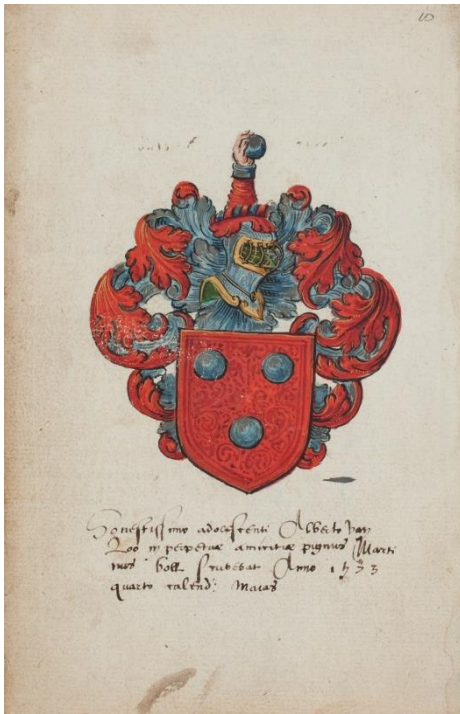 10
Honestissimo adolescenti Alberto van
Loo in perpetuae amicitiae pignus Marti
nus Boll scribebat Anno 1573
quarto calend: Maias